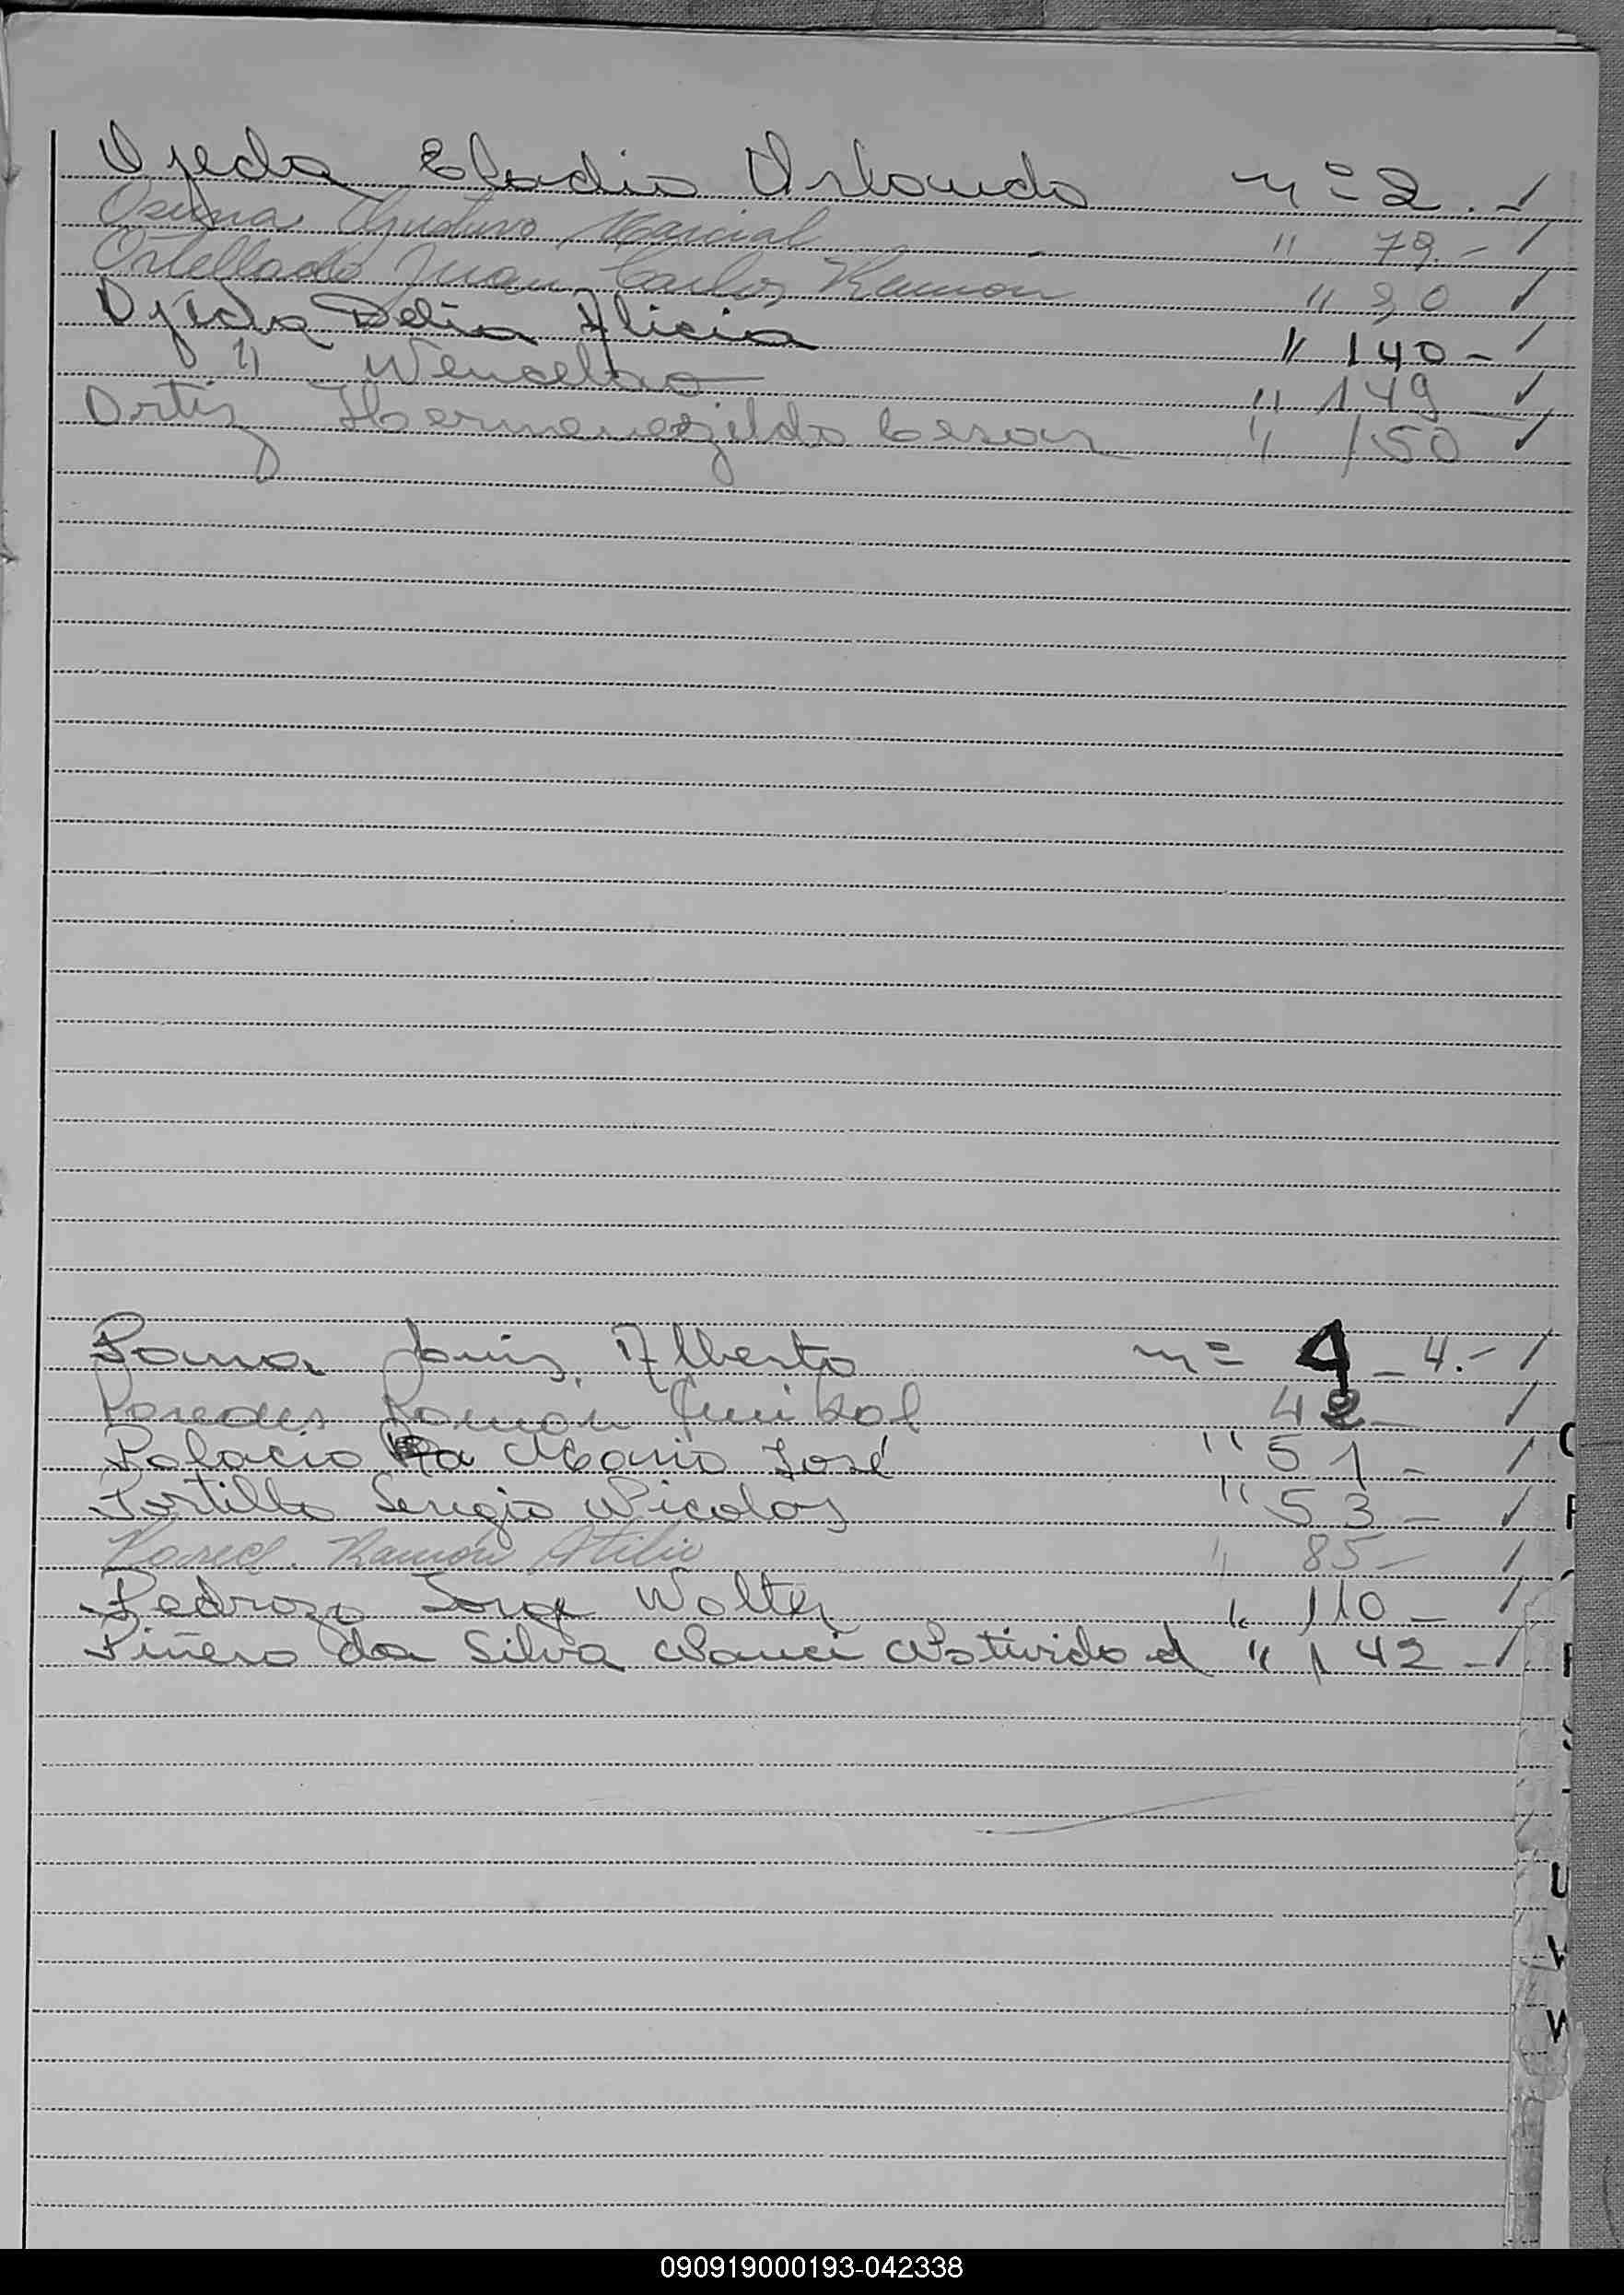 Ojeda Eladio Orlando nº 2.- ✓
Osuna Gustavo Marcial " 79.- ✓
Ortellado Juan Carlos Ramón " 80 ✓
Ojeda Delia Alicia " 140 - ✓
" Wencelao " 149 ✓
Ortiz Hermenegildo Cesar " 150 ✓
Parra Luis Alberto nº 4 - 4.- ✓
Paredes Ramón 42 - ✓
Palacio Mario José " 51 - ✓
Portillo Sergio Nicolas " 53 - ✓
Ramón Atilio " 85 - ✓
Pedrozo Jorge Walter " 110 - ✓
Piñero da Silva Nanci Natividad " 142 - ✓
U
V
W
090919000193-042338